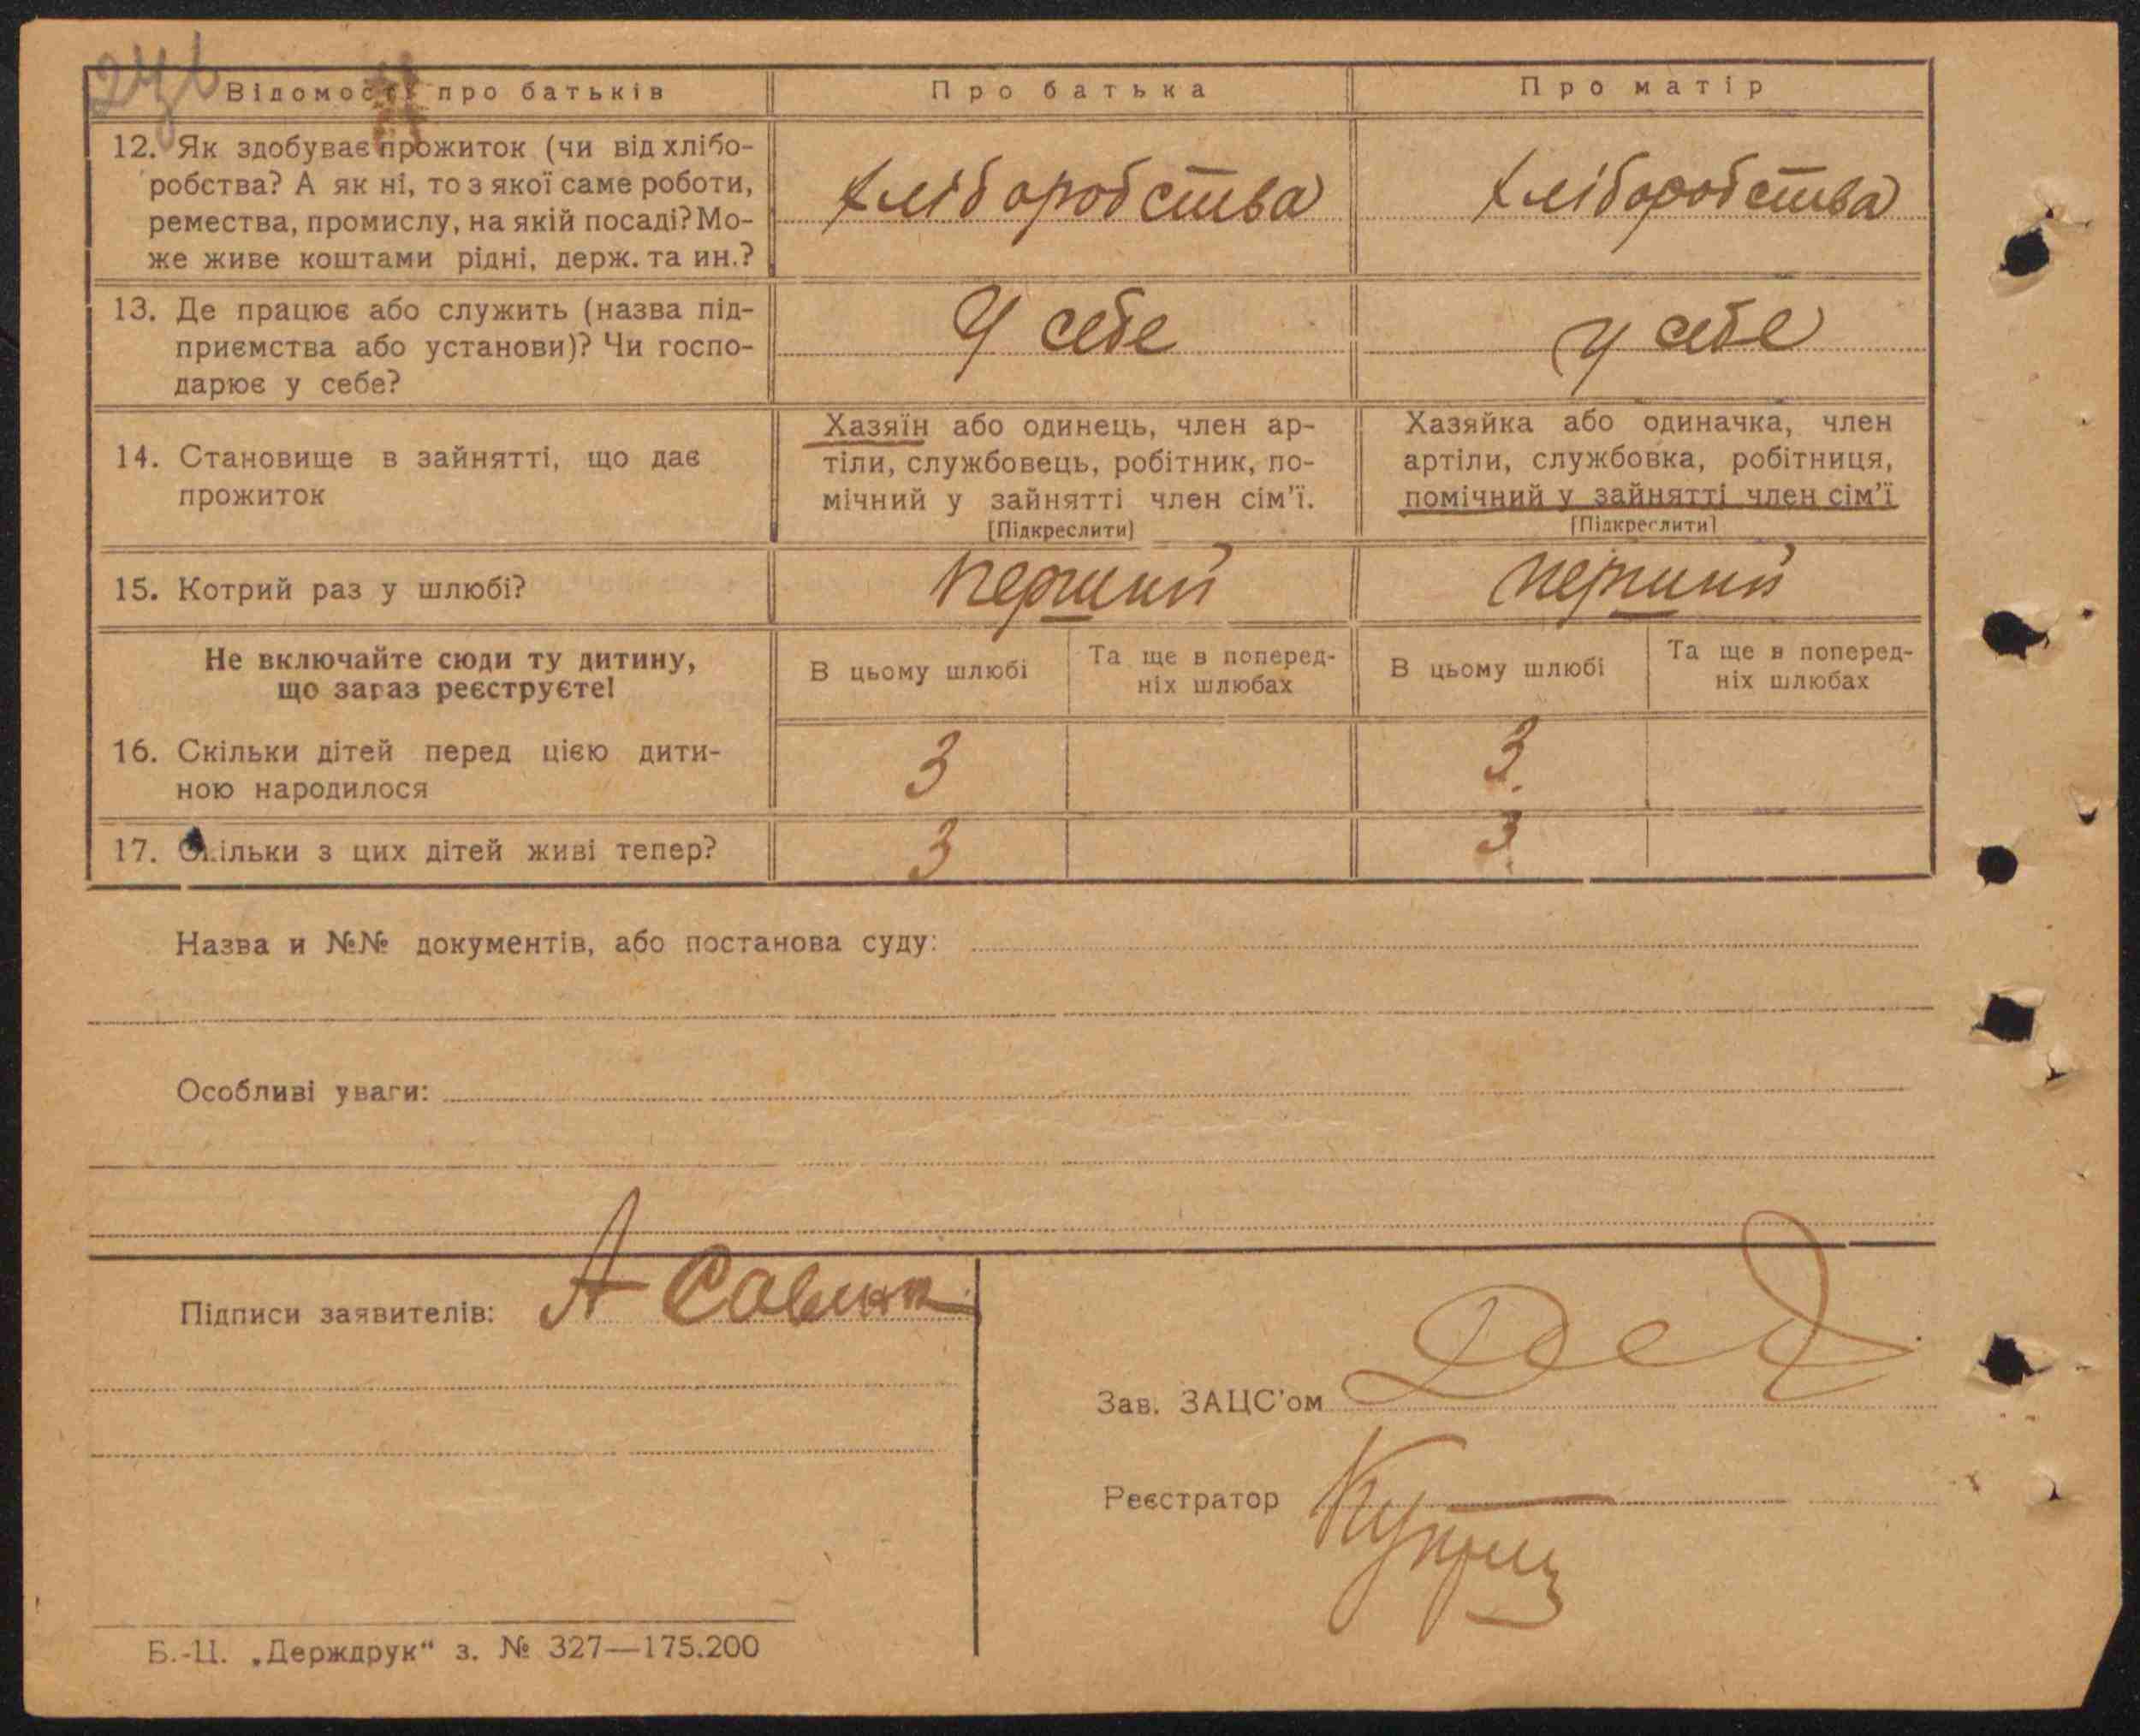 Відомості про батьків
Про батька
Про матір
12. Як здобуває прожиток (чи від хлібо-
робства? А як ні, то з якої саме роботи,
ремества, промислу, на якій посаді? Мо-
же живе коштами рідні, держ. та ин.?
хліборобства
хліборобства
13. Де працює або служить (назва під-
приємства або установи)? Чи госпо-
дарює у себе?
У себе
у себе
14. Становище в зайнятті, що дає
прожиток
Хазяїн або одинець, член ар-
тіли, службовець, робітник, по-
мічний у зайнятті член сім'ї.
[Підкреслити]
Хазяйка або одиначка, член
артіли, службовка, робітниця,
помічний у зайнятті член сім'ї
[Підкреслити]
15. Котрий раз у шлюбі?
перший
перший
Не включайте сюди ту дитину,
що зараз реєструєте!
В цьому шлюбі
Та ще в поперед-
ніх шлюбах
В цьому шлюбі
Та ще в поперед-
ніх шлюбах
16. Скільки дітей перед цією дити-
ною народилося
3
3.
17. Скільки з цих дітей живі тепер?
3
3.
Назва и №№ документів, або постанова суду:
Особливі уваги:
Підписи заявителів: А
Зав. ЗАЦС'ом
Реєстратор
Б.-Ц. „Держдрук“ з. № 327—175.200